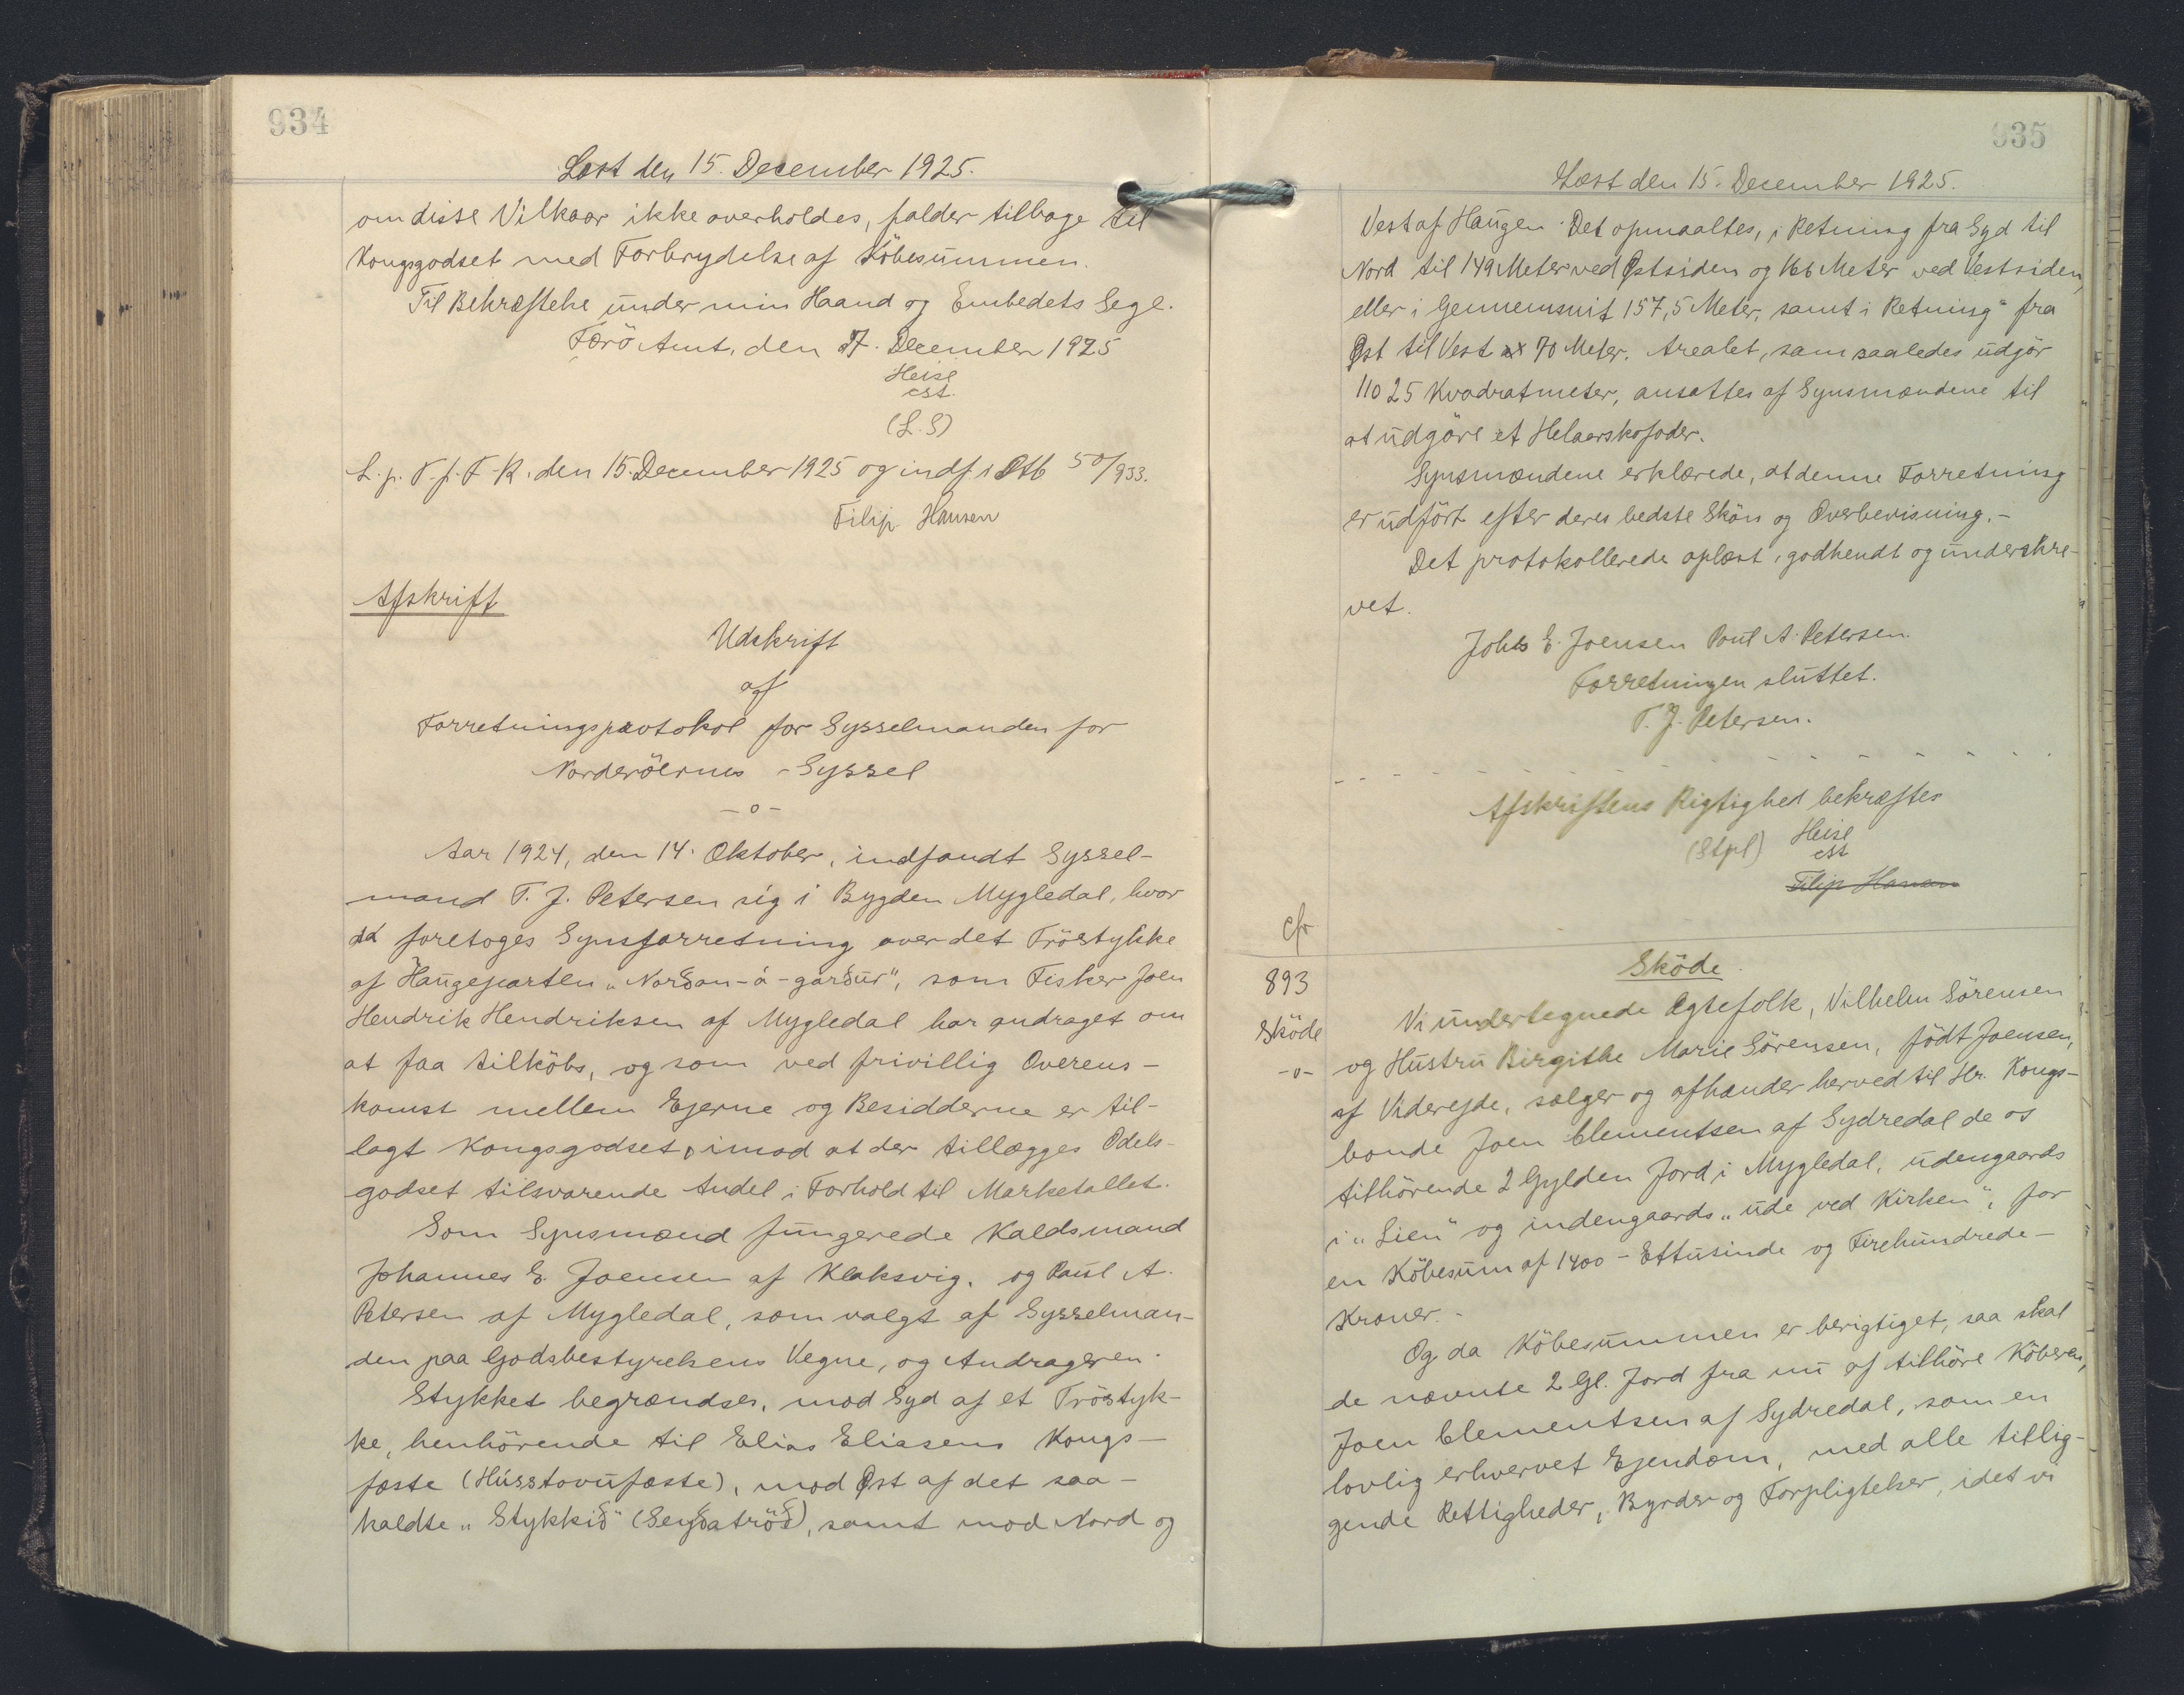 934
Læst den 15. December 1925.
om disse Vilkaar ikke overholdes, falder tilbage til
Kongsgodset med Forbrydelse af Köbesummen.
Til Bekræftelse under min Haand og Embedets Segl.
Færö Amt, den 7. December 1925
Heise
cst.
(L.S)
L. p. T. f. F. R. den 15. December 1925 og indf. i Ptb 50/933.
Filip Hansen
Afskrift
Udskrift
af
Forretningsprotokol for Sysselmanden for
Norderöernes - Syssel
-o-
Aar 1924, den 14. Oktober, indfandt Syssel-
mand T. J. Petersen sig i Bygden Mygledal, hvor
foretoges Synsforretning over det Tröstykke
af Haugeparten „Norðan-á-garður", som Fisker Joen
Hendrik Hendriksen af Mygledal har andraget om
at faa tilköbs, og som ved frivillig Overens-
komst mellem Ejerne og Besidderne er til-
lagt Kongsgodset, imod at der tillægges Odels-
godset tilsvarende Andel i Forhold til Marketallet.
Som Synsmænd fungerede Kaldsmand
Johannes E. Joensen af Klaksvig, og Paul A.
Petersen af Mygledal, som valgt af Sysselman-
den paa Godsbestyrelsens Vegne, og Andrageren.
Stykket begrændses, mod Syd af et Tröstyk-
ke, henhörende til Elias Eliasens Kongs-
fæste (Hússtovufæste), mod Øst af det saa-
kaldte „Stykkið" (Seyðatröð), samt mod Nord og
935
Læst den 15. December 1925.
Vest af Haugen. Det opmaaltes, i Retning fra Syd til
Nord til 149 Meter ved Østsiden og 166 Meter ved Vestsiden,
eller i Gennemsnit 157,5 Meter, samt i Retning fra
Øst til Vest 70 Meter. Arealet, som saaledes udgör
11025 Kvadratmeter, ansattes af Synsmændene til
at udgöre et Helaarskofoder.
Synsmændene erklærede, at denne Forretning
er udfört efter deres bedste Skön og Overbevisning.-
Det protokollerede oplæst, godkendt og underskre-
vet.
Johs E. Joensen Poul A. Petersen.
Forretningen sluttet.
T. J. Petersen.
Afskriftens Rigtighed bekræftes
Heise
(Stpl) cst
Filip Hansen
cfr
893
Sköde
-o-
Sköde.
Vi undertegnede Ægtefolk, Vilhelm Sörensen
og Hustru Birgithe Marie Sörensen, födt Joensen,
af Viderejde, sælger og afhænder herved til Hr. Kongs-
bonde Joen Clementsen af Sydredal de os
tilhörende 2 Gylden Jord i Mygledal, udengaards
i „Lien" og indengaards „ude ved Kirken", for
en Köbesum af 1400 - Ettusinde og Firehundrede -
Kroner.-
Og da Köbesummen er berigtiget, saa skal
de nævnte 2 Gl. Jord fra nu af tilhöre Köberen,
Joen Clementsen af Sydredal, som en
lovlig erhvervet Ejendom, med alle tillig-
gende Rettigheder, Byrder og Forpligtelser, idet vi